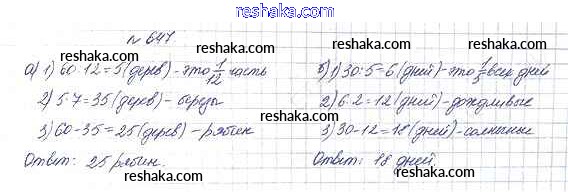 reshaka.com
№ 647
reshaka.com
reshaka.com
а) 1) 60:12=5 (дерев) - это 1/12 часть
2) 5·7=35 (дерев) - берёзы
3) 60-35=25 (дерев) - рябин
Ответ: 25 рябин.
б) 1) 30:5=6 (дней) - это 1/5 всех дней
2) 6·2=12 (дней) - дождливые
3) 30-12=18 (дней) - солнечные
Ответ: 18 дней.
reshaka.com
reshaka.com
reshaka.com
reshaka.com
reshaka.com
reshaka.com